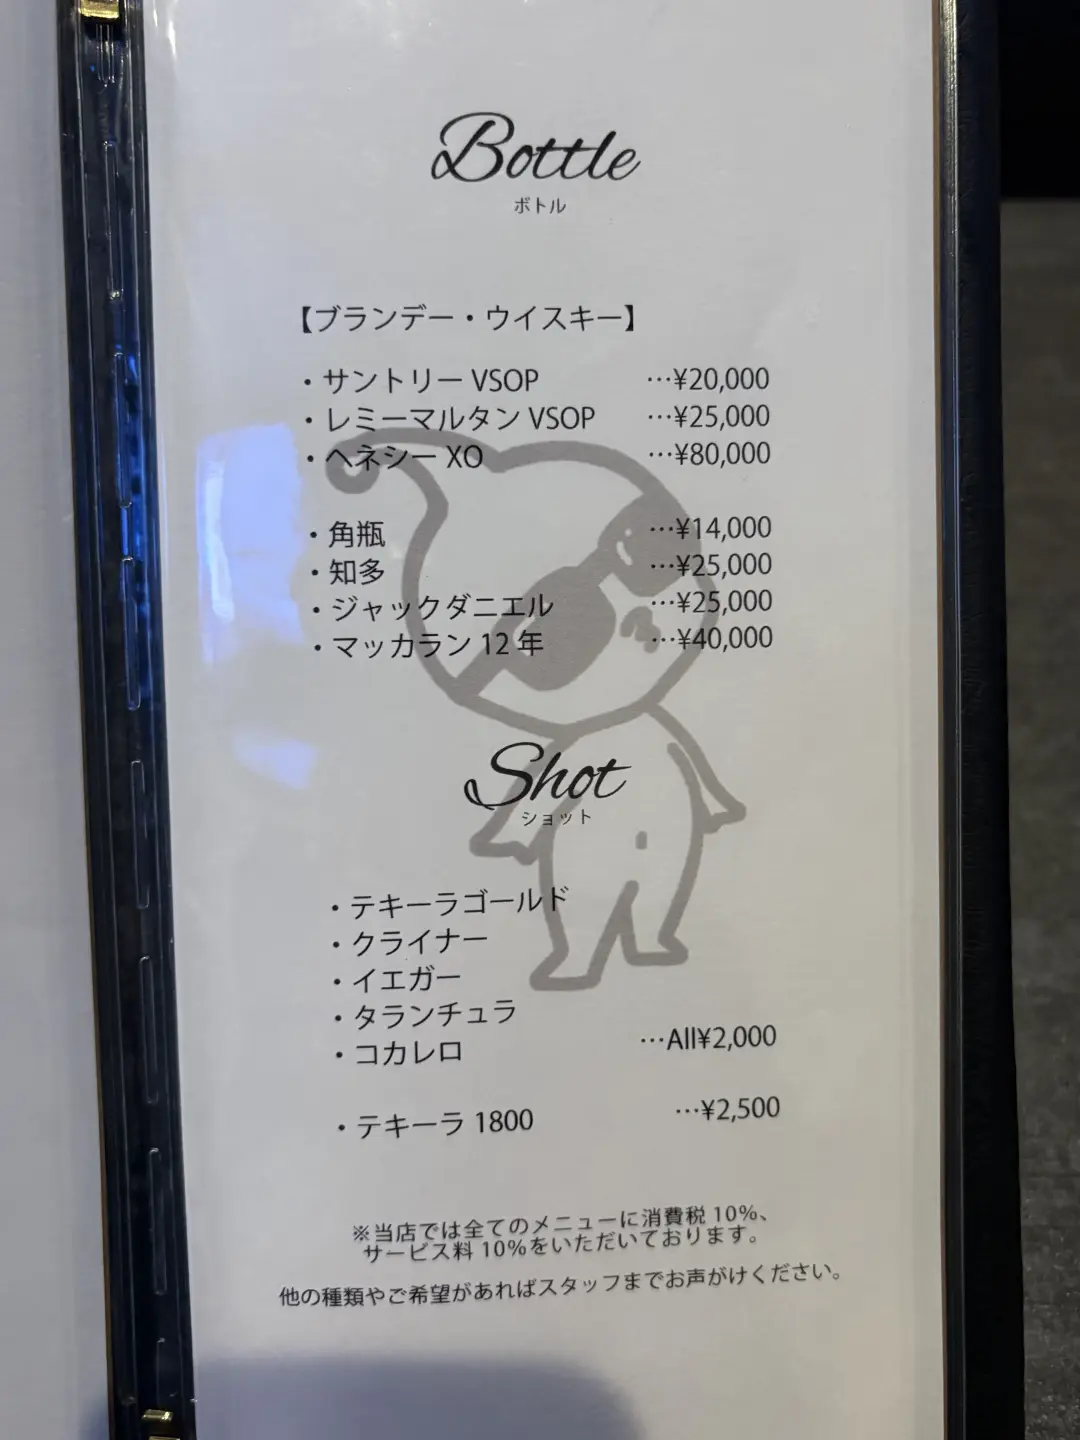 Bottle
ボトル
【ブランデー・ウイスキー】
・サントリー VSOP …¥20,000
・レミーマルタン VSOP …¥25,000
・ヘネシー XO …¥80,000
・角瓶 …¥14,000
・知多 …¥25,000
・ジャックダニエル …¥25,000
・マッカラン 12 年 …¥40,000
Shot
ショット
・テキーラゴールド
・クライナー
・イエガー
・タランチュラ
・コカレロ …All¥2,000
・テキーラ 1800 …¥2,500
※当店では全てのメニューに消費税 10%、
サービス料 10%をいただいております。
他の種類やご希望があればスタッフまでお声がけください。